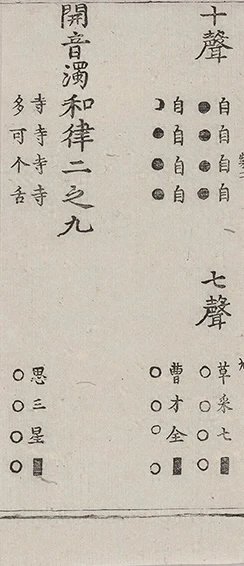 十聲
自自自自
●●●●
自自自自
●●●●
七聲
草采七■
○○○○
曹才全■
○○○○
開音濁和律二之九
寺寺寺寺
多可个舌
思三星■
○○○○